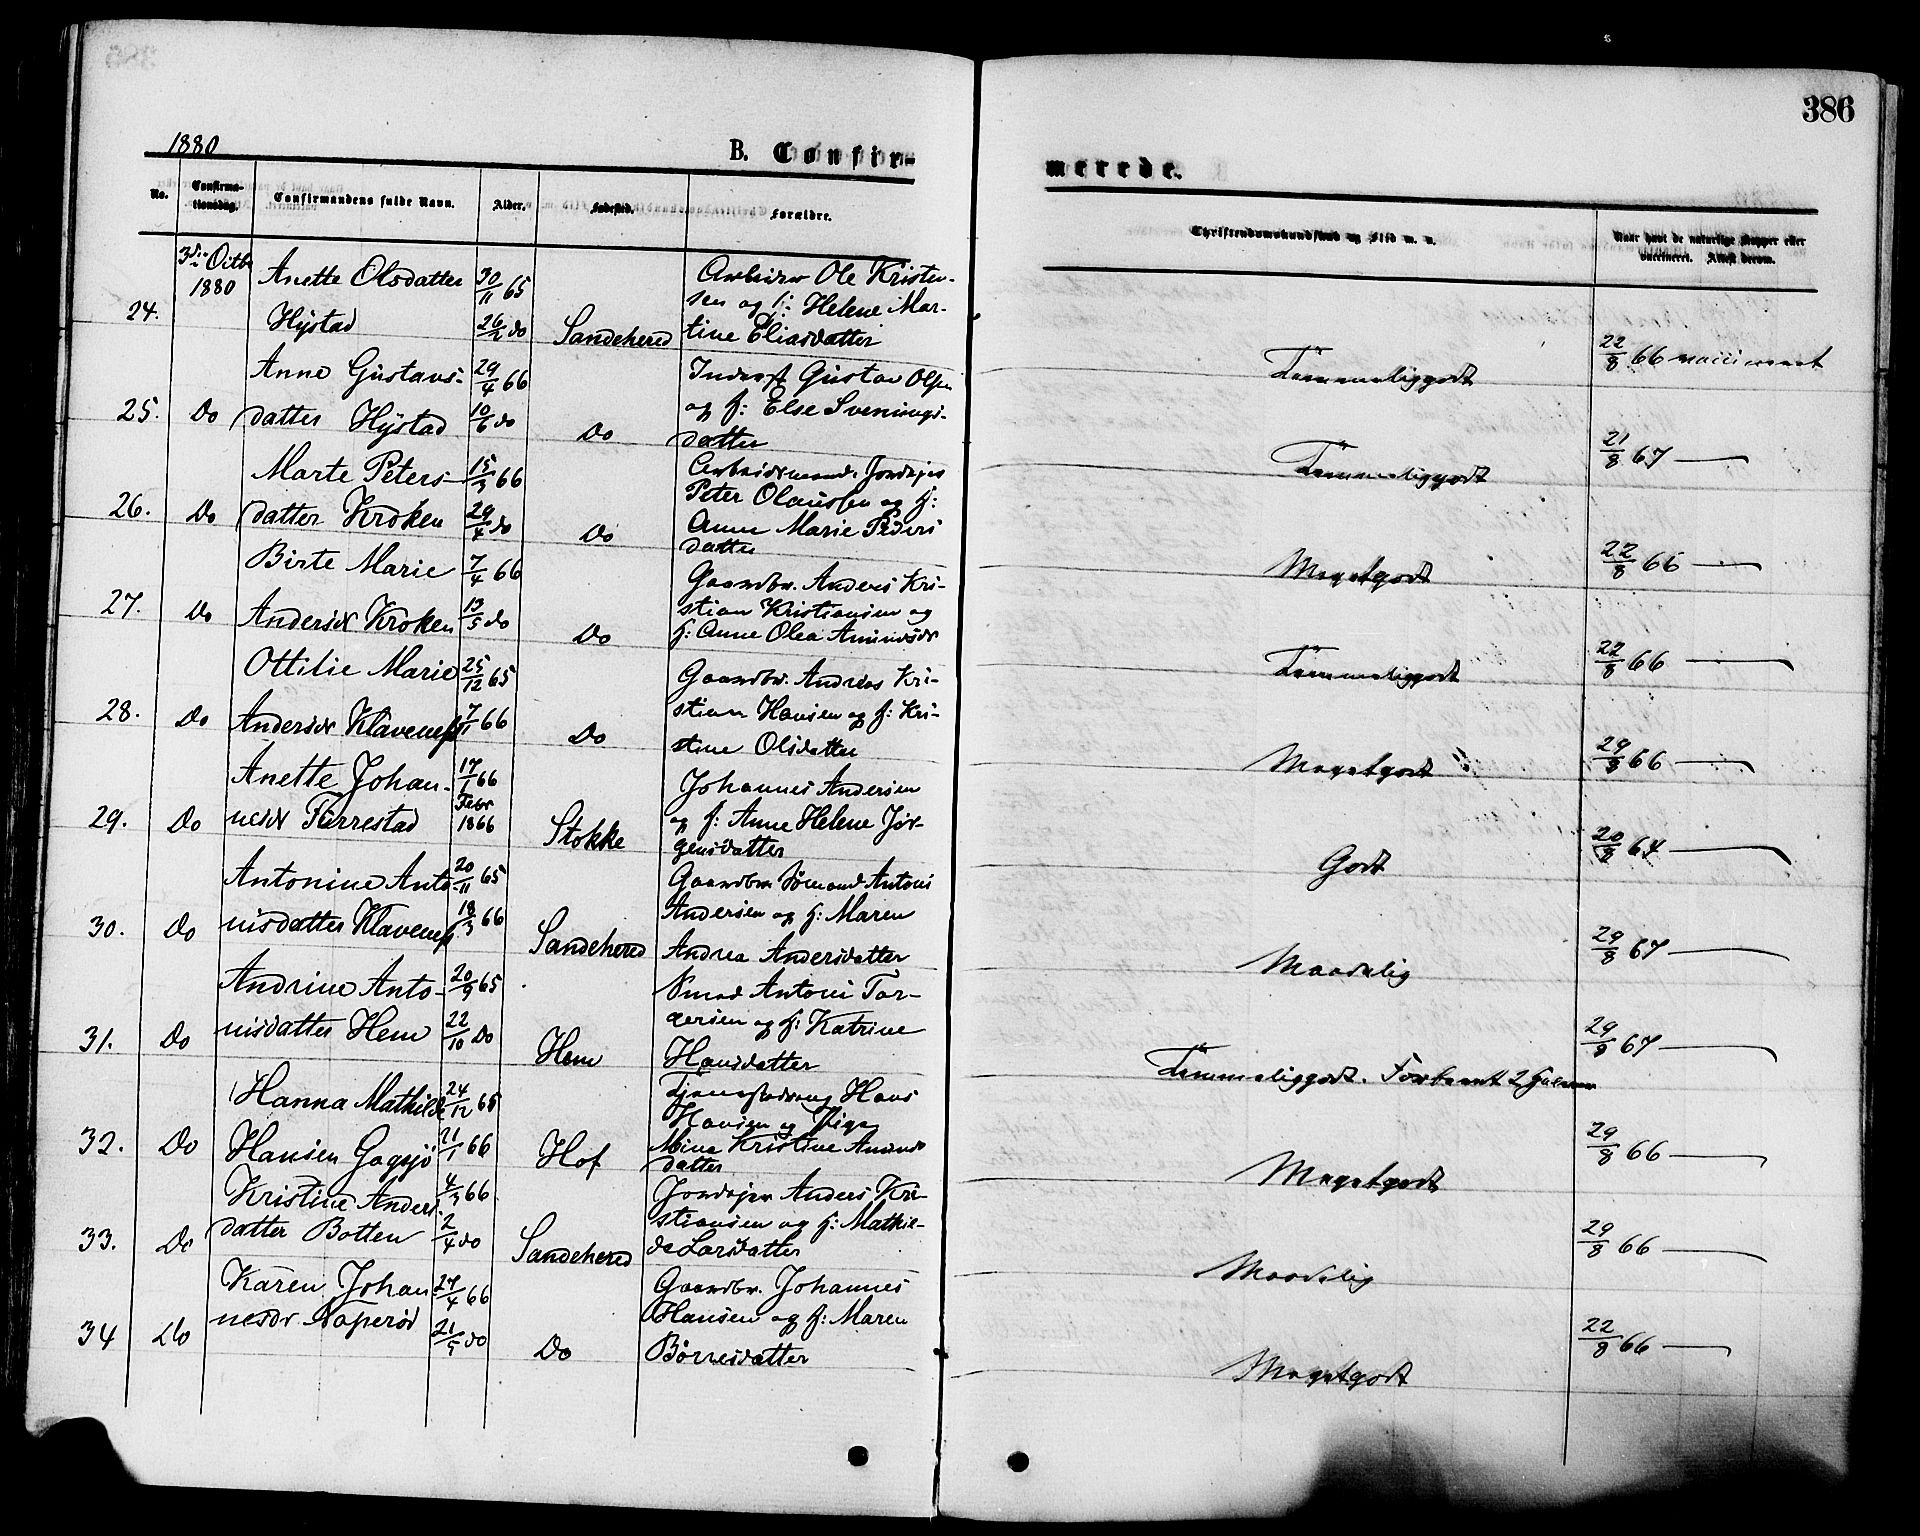 386
1880
B. Confir-
merede.
No.
Confirma-
tionsdag.
Confirmandens fulde Navn.
Alder.
Fødested.
Forældre.
Christendomskundskab og Flid m. v.
Naar havt de naturlige Kopper eller
vaccineret. Attest derom.
24.
3die Octbr
1880
Anette Olsdatter
Hÿstad
30/11 65
26/12 do
Sandehered
Arbeider Ole Kristen-
sen og h: Helene Mar-
tine Eliasdatter
Temmeliggodt
22/8 66 vaccineret
25. Do
Anne Gustavs-
datter Hÿstad
29/4 66
10/6 do
Do
Inderst Gustav Olsen
og h: Else Svenings-
datter
Temmeliggodt
21/8 67
26. Do
Marte Peters-
datter Kroken
15/3 66
29/4 do
Do
Arbeidsmand Jordejer
Peter Olaussen og h:
Anne Marie Peders
datter
Megetgodt
22/8 66
27. Do
Birte Marie
Andersdr Kroken
7/4 66
13/5 do
Do
Gaardbr. Anders Kri-
stian Kristiansen og
h: Anne Olea Amundsdr
Temmeliggodt
22/8 66
28. Do
Ottilie Marie
Andersdr Klaveness
25/12 65
7/1 66
Do
Gaardbr. Andreas Kri-
stian Hansen og h: Kri-
stine Olsdatter
Megetgodt
29/8 66
29. Do
Anette Johan-
nesdr Furrestad
17/1 66
Febr
1866
Stokke
Johannes Andersen
og h: Anne Helene Jør-
gensdatter
Godt
20/8 64
30. Do
Antonine Anto-
nisdatter Klavenes
20/11 65
18/3 66
Sandehered
Gaardbr. Sømand Antoni
Andersen og h: Maren
Andrea Andersdatter
Maadelig
29/8 67
31. Do
Andrine Anto-
nisdatter Hem
20/9 65
22/10 Do
Hem
Smed Antoni Tor-
gersen og h: Katrine
Hansdatter
Temmeliggodt.
29/8 67
32. Do
Hanna Mathilde
Hansen Gogsjø
24/12 65
21/1 66
Hof
Hans
Hansen og Pige
Mina Kristine Amunds
datter
Megetgodt
29/8 66
33. Do
Kristine Anders
datter Botten
4/3 66
2/4 do
Sandehered
Jordejer Anders Kri-
stiansen og h: Mathil-
de Larsdatter
Maadelig
29/8 66
34 Do
Karen Johan
nesdr Naperød
27/4 66
21/5 do
Do
Gaardbr. Johannes
Hansen og h: Maren
Børresdatter
Megetgodt
22/8 66